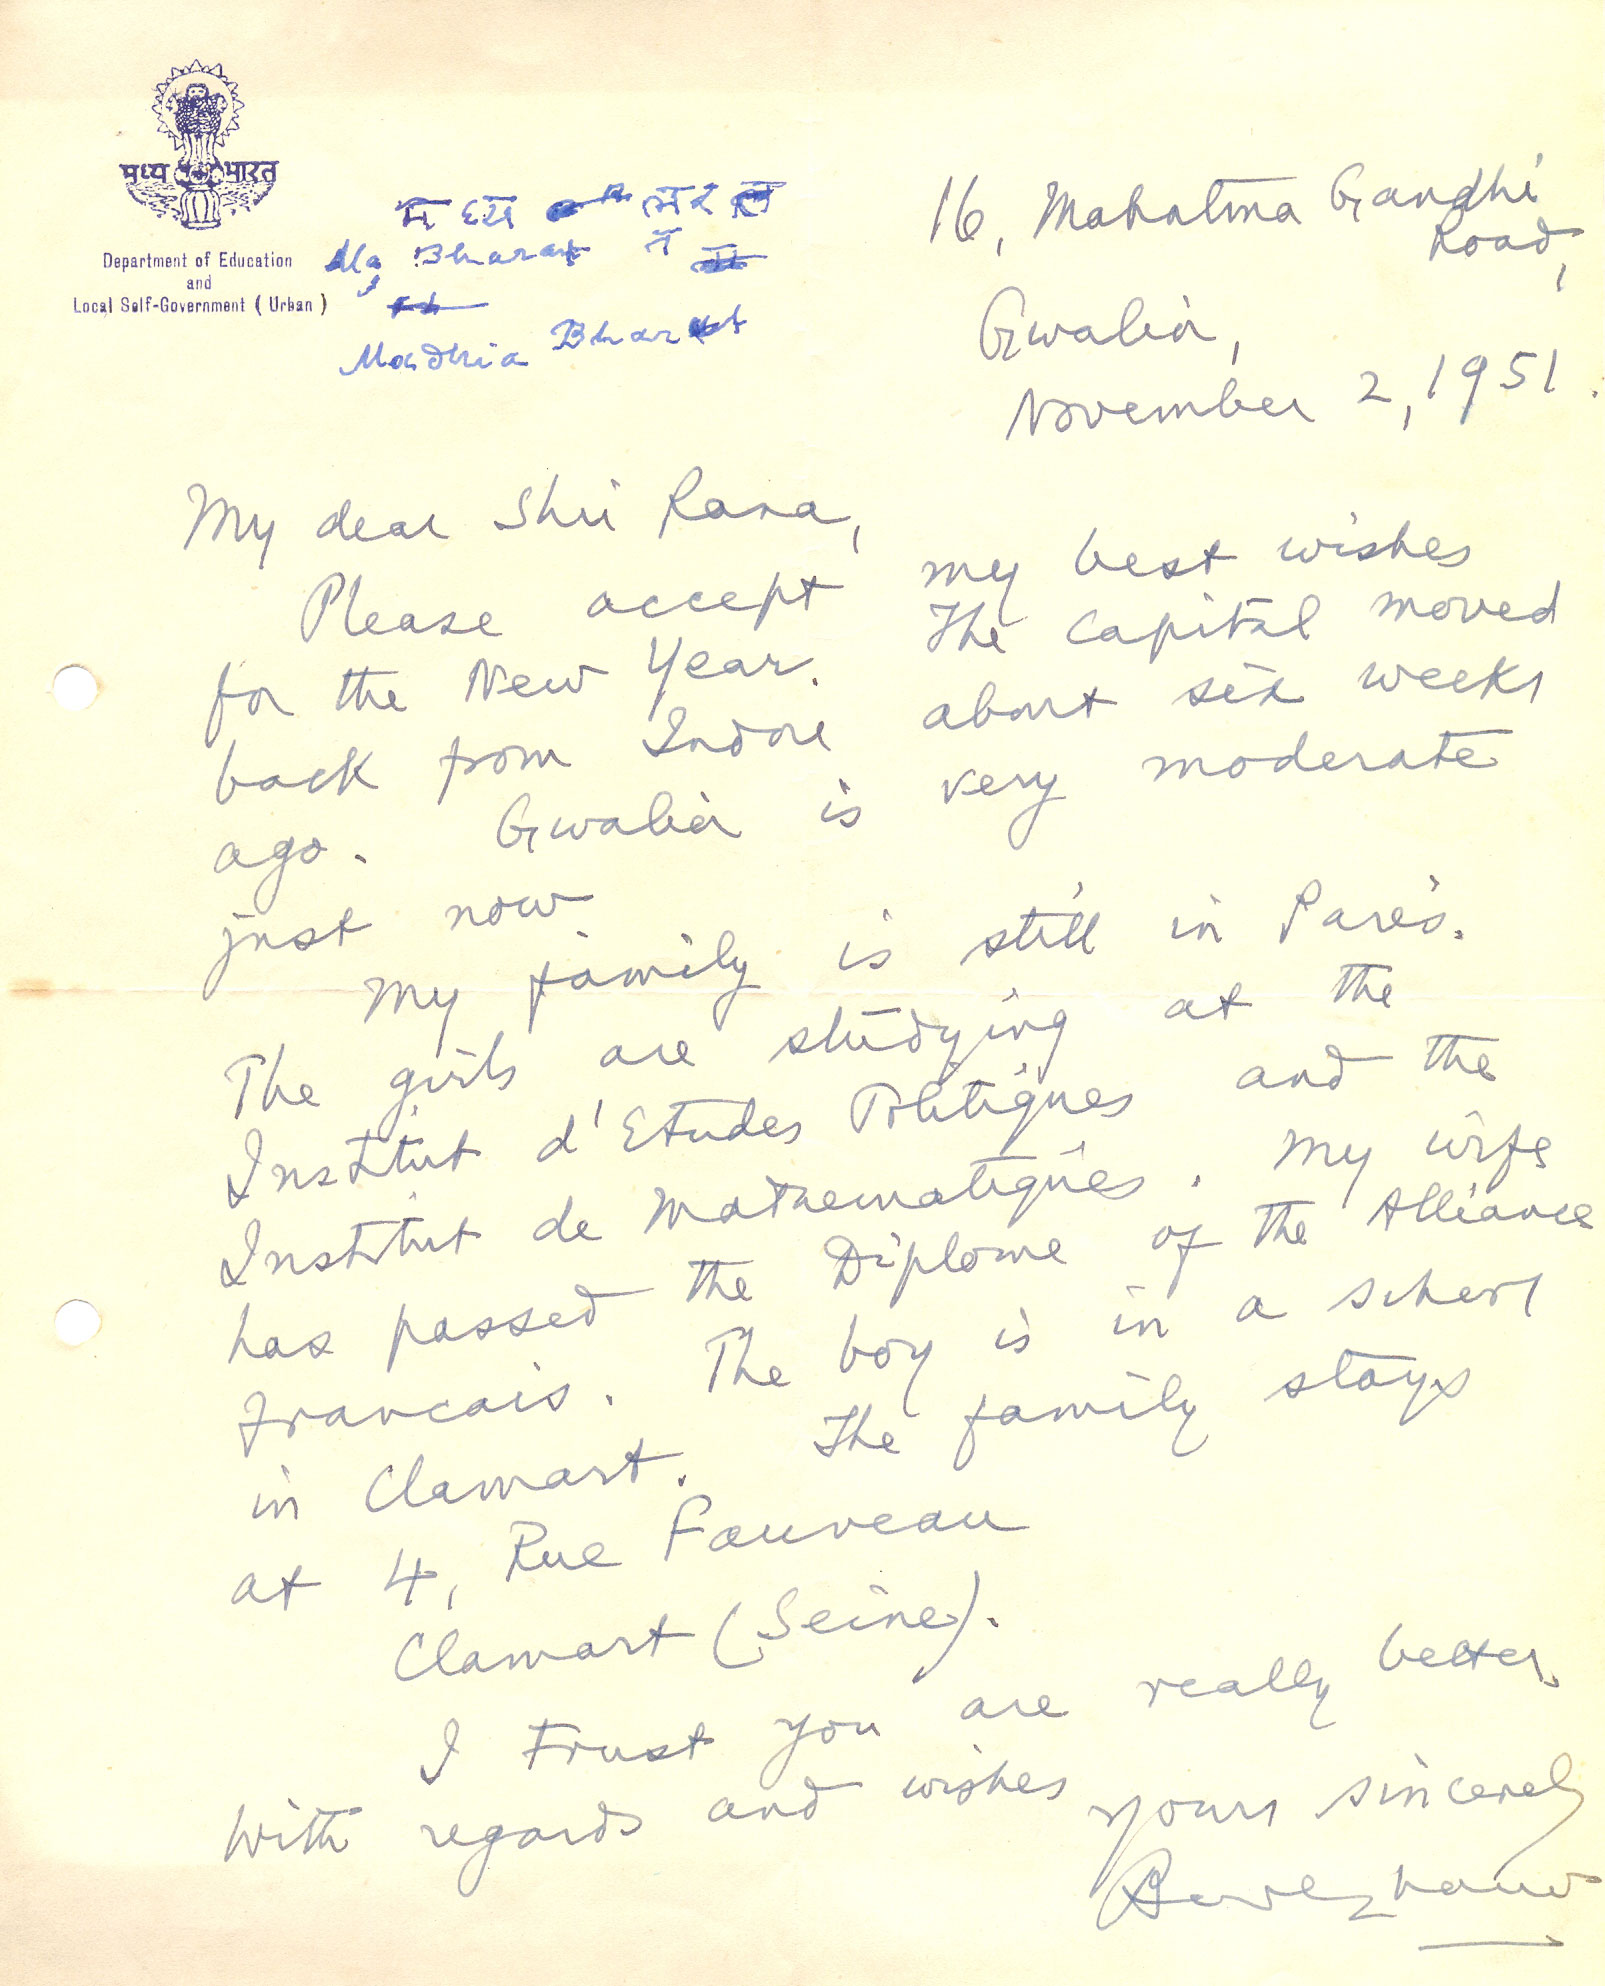 मध्य भारत
Department of Education
and
Local Self-Government ( Urban )
Bharat
Madhia Bharat
16, Mahatma Gandhi
Road,
Gwalior,
November 2, 1951.
My dear Shri Rana,
Please accept my best wishes
for the New Year. The Capital moved
back from Indore about six weeks
ago. Gwalior is very moderate
just now
My family is still in Paris.
The girls are studying at the
Institut d'Etudes Politiques and the
Institut de Mathematiques. My wife
has passed the Diplome of the Alliance
Francais. The boy is in a school
in Clamart. The family stays
at 4, Rue Fauveau
Clamart (Seine).
I trust you are really better.
With regards and wishes
Yours sincerely